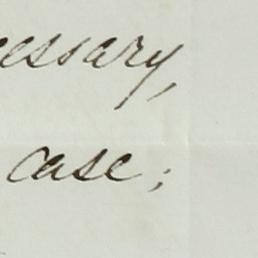 cessary,
case;